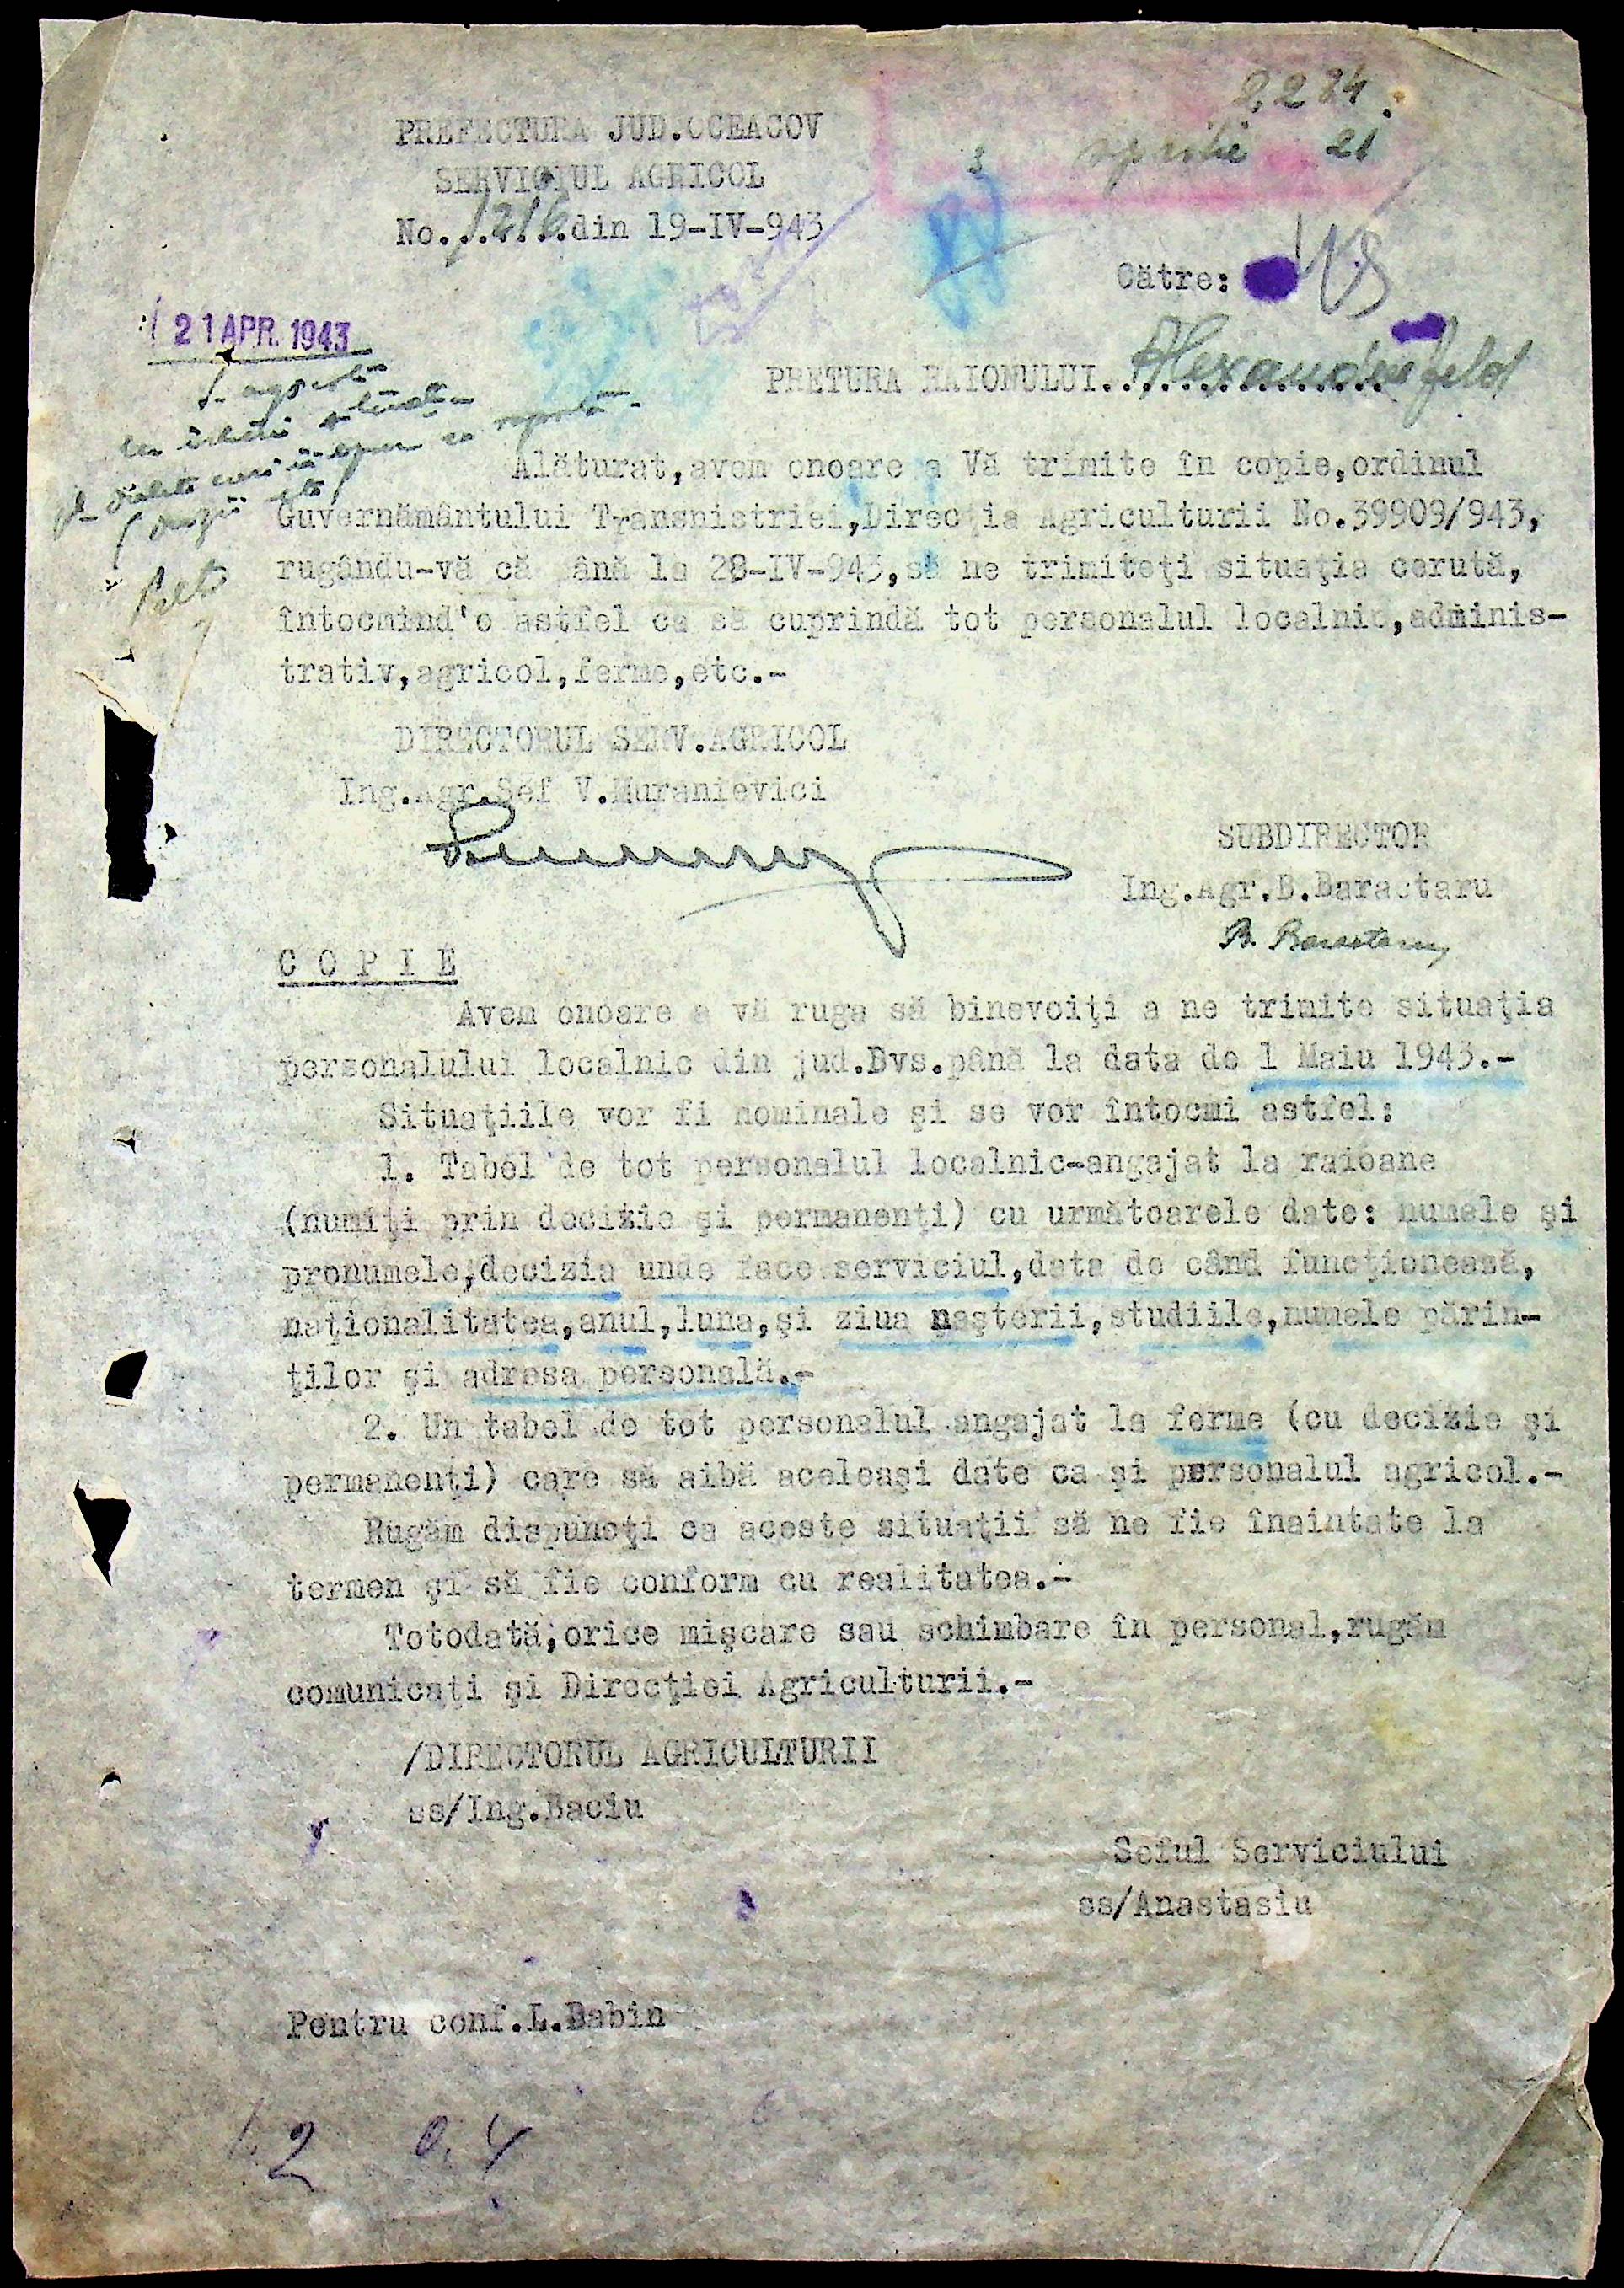 2284
3 aprilie 21
PREFECTURA JUD.OCEACOV
SERVICIUL AGRICOL
No.1216.din 19-IV-943
Către:
21 APR. 1943
PRETURA RAIONULUI. Alexanderfeld
Alăturat,avem onoare a Vă trimite în copie,ordinul
Guvernământului Transnistriei,Direcţia Agriculturii No.39909/943,
rugându-vă că ână la 28-IV-943,să ne trimiteţi situaţia cerută,
întocmind'o astfel ca să cuprindă tot personalul localnic,adminis-
trativ,agricol,ferme,etc.-
DIRECTORUL SERV.AGRICOL
Ing.Agr.Şef V.Muranievici
SUBDIRECTOR
Ing.Agr.B.Baractaru
COPIE
Avem onoare a vă ruga să binevoiţi a ne trimite situaţia
personalului localnic din jud.Dvs.până la data de 1 Maiu 1943.-
Situaţiile vor fi nominale şi se vor întocmi astfel:
1. Tabel de tot personalul localnic-angajat la raioane
(numiţi prin decizie şi permanenţi) cu următoarele date: numele şi
pronumele,decizia unde face serviciul,data de când funcţionează,
naţionalitatea,anul,luna,şi ziua naşterii,studiile,numele părin-
ţilor şi adresa personală.-
2. Un tabel de tot personalul angajat la ferme (cu decizie şi
permanenţi) care să aibă aceleaşi date ca şi personalul agricol.-
Rugăm dispuneţi ca aceste situaţii să ne fie înaintate la
termen şi să fie conform cu realitatea.-
Totodată,orice mişcare sau schimbare în personal,rugăm
comunicaţi şi Direcţiei Agriculturii.-
/DIRECTORUL AGRICULTURII
ss/Ing.Baciu
Seful Serviciului
ss/Anastasiu
Pentru conf.L.Babin